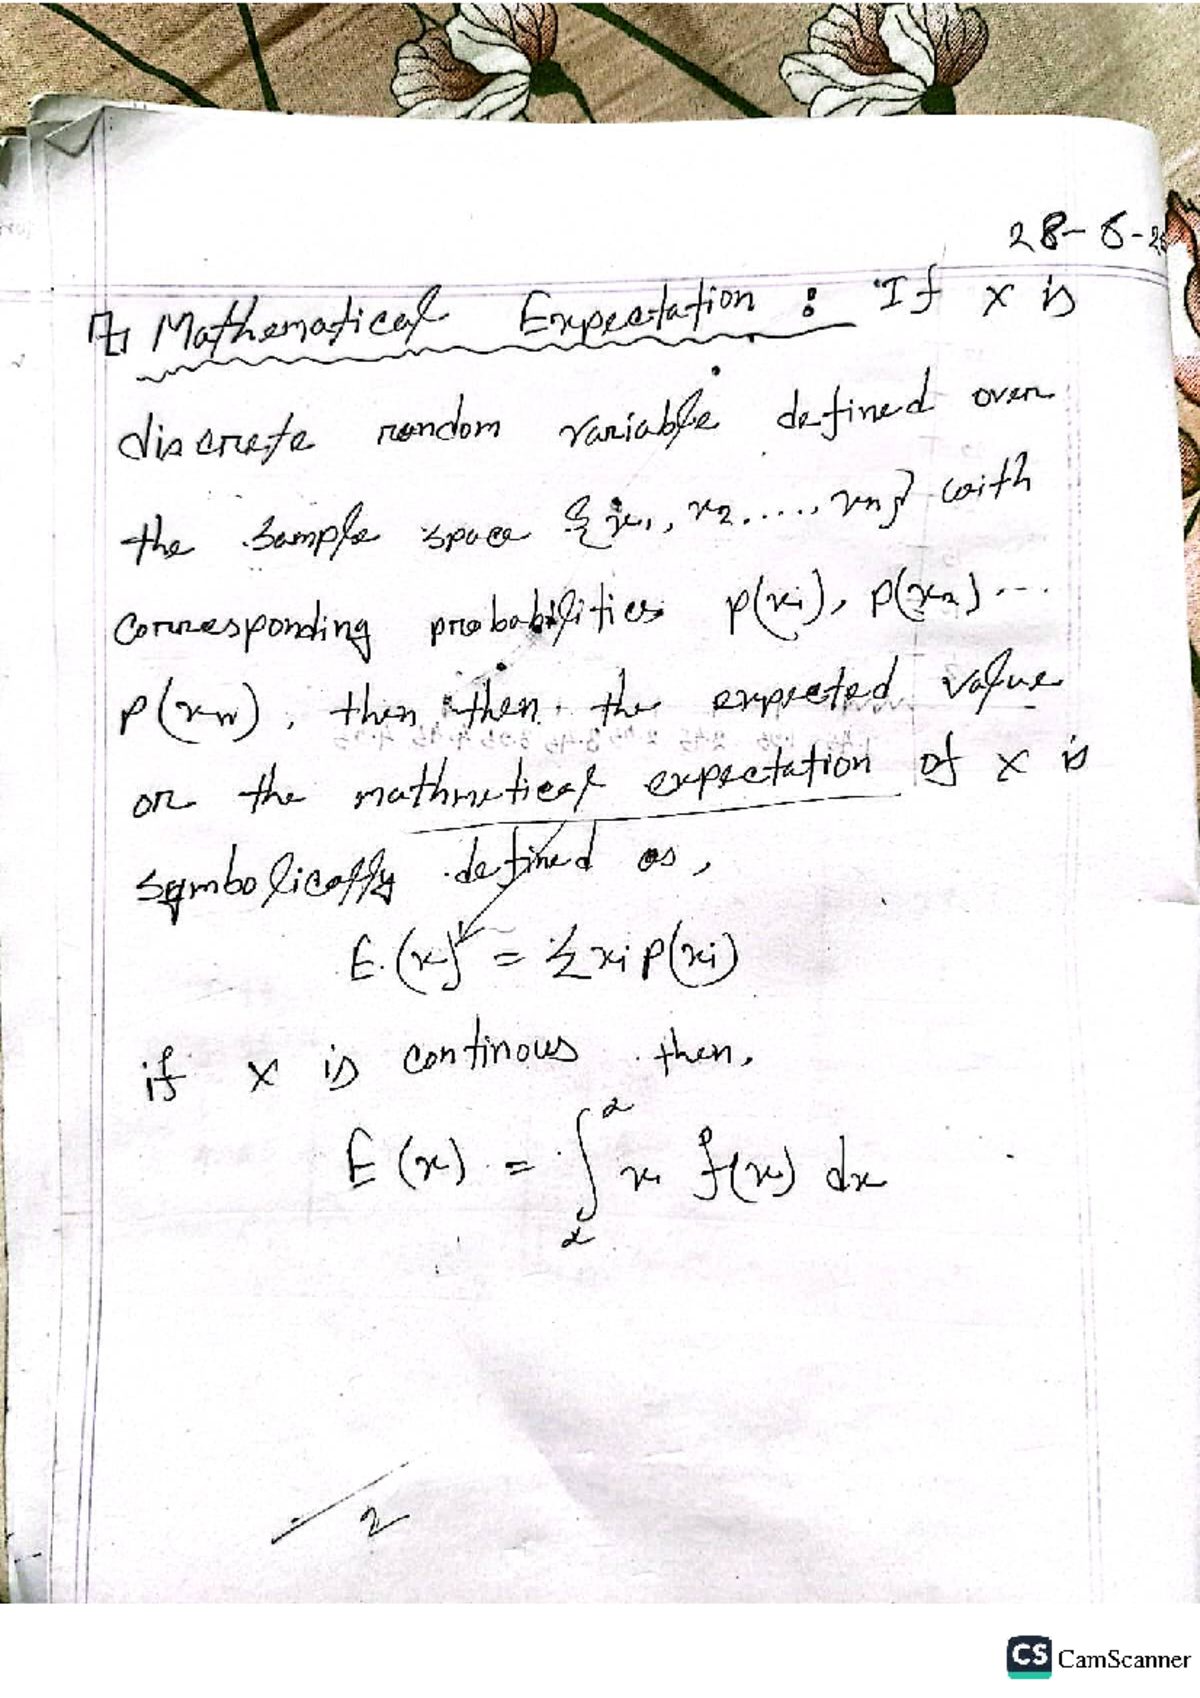 28-6-2
Mathematical Expectation : If X is
discrete random variable defined over
the sample space {x1, x2....., xn} with
corresponding probabilities p(xi), p(x2)...
P(xn), then then the expected value
or the mathmetical expectation of X is
symbolically defined as,
E(x) = Σxi p(xi)
if X is continous then,
E(x) = ∫ x f(x) dx
2
CS CamScanner